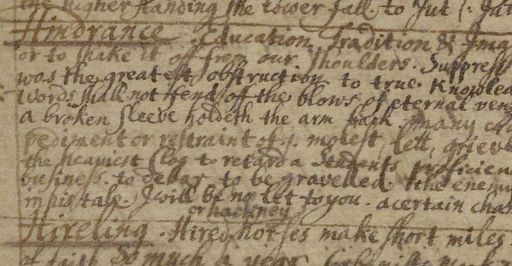 the higher standing the lower fall. to Jut
Hindrance Education, Tradition &
or to shake it off from our shoulders. Suppress
was the greatest obstruction to true Knowled
words shall not fend off the blows of eternal ven
a broken sleeve holdeth the arm back many
pediment or restraint of. molest, lett, grieve
the heaviest clog to retard a students proficien
business. to debar. to be gravelled the enemy
in his tale. I will be no let to you. a certain
or hackney
Hireling. Hired horses make short miles
so much a year